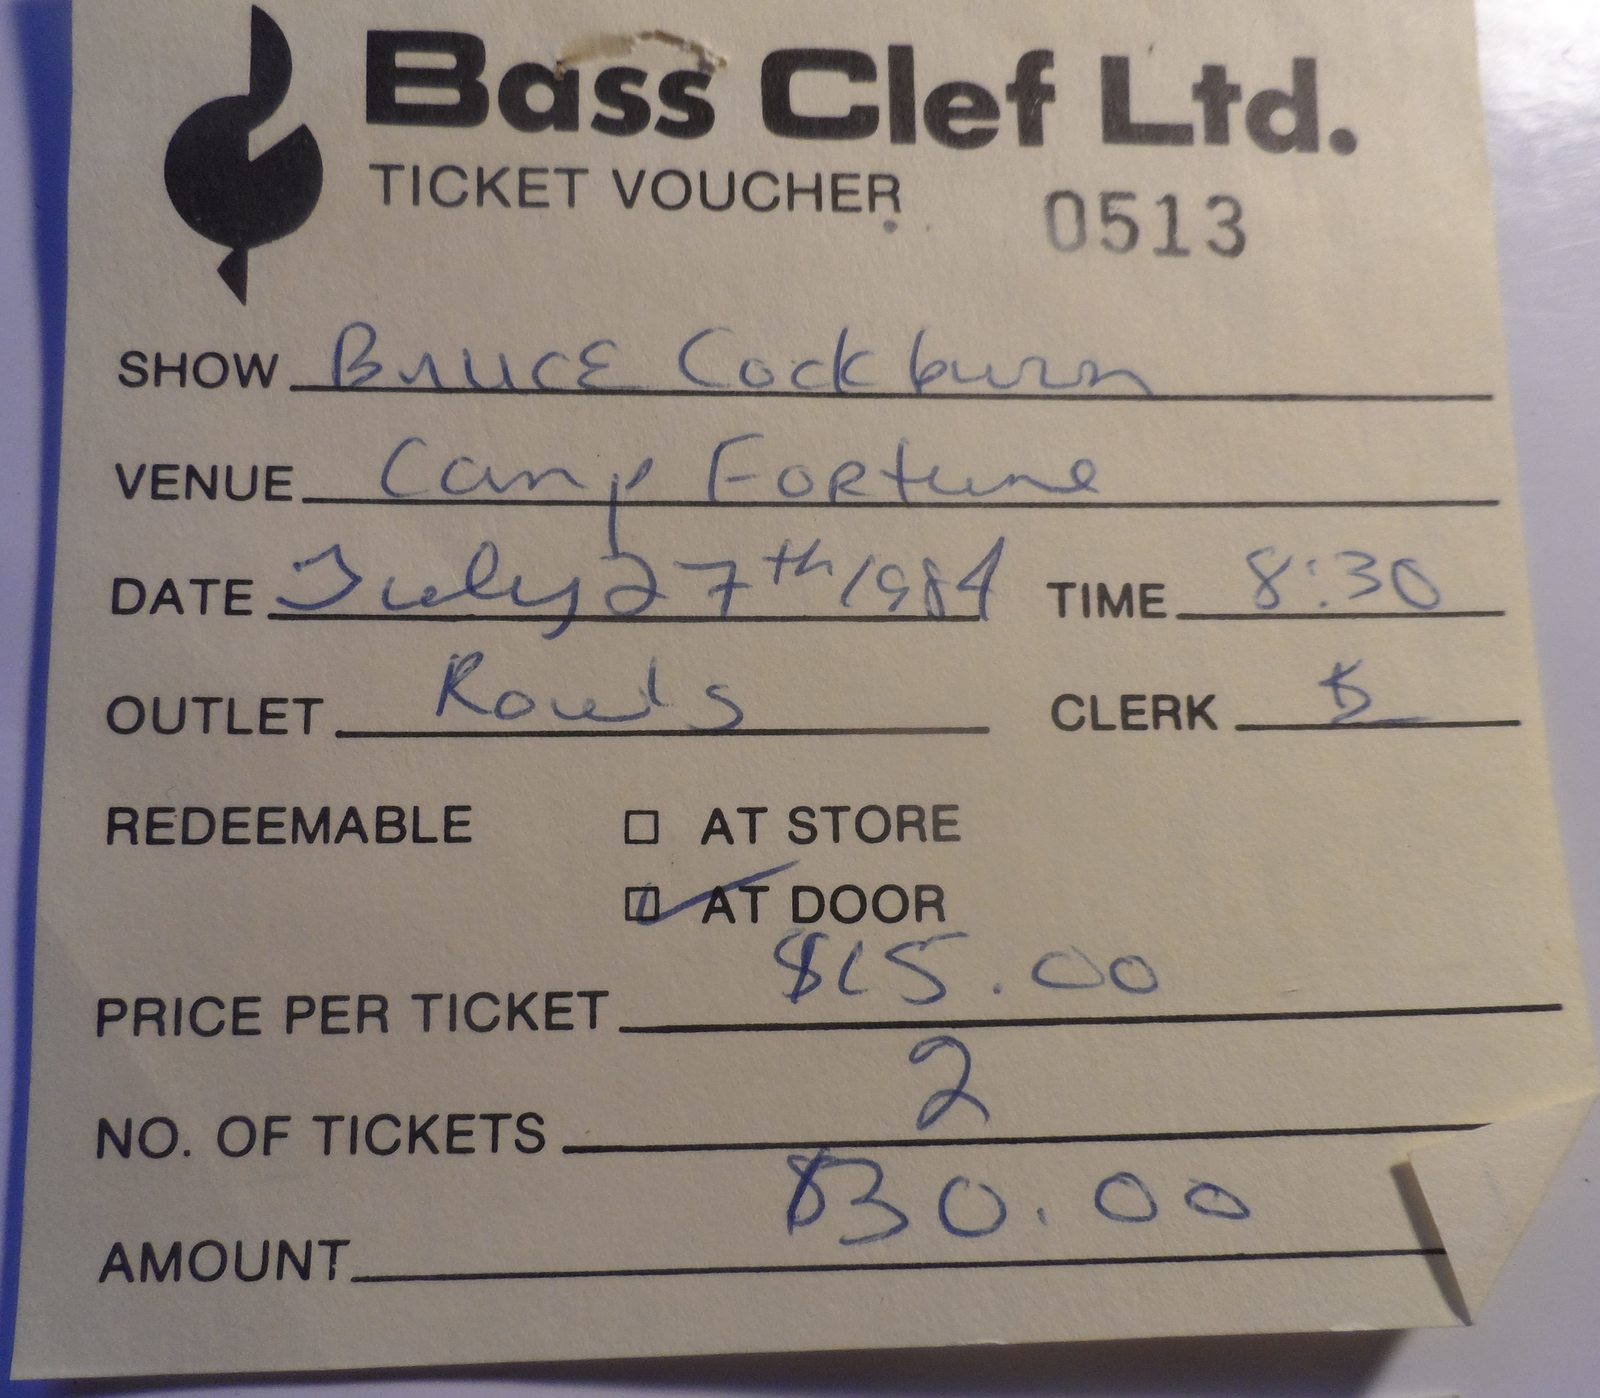 Bass Clef Ltd.
TICKET VOUCHER 0513
SHOW Bruce Cockburn
VENUE Camp Fortune
DATE July 27th 1984 TIME 8:30
OUTLET CLERK
REDEEMABLE AT STORE
AT DOOR
PRICE PER TICKET $15.00
NO. OF TICKETS 2
AMOUNT $30.00